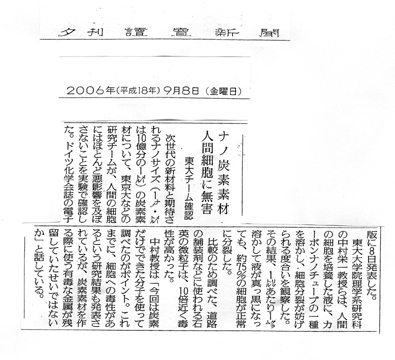 夕刊 讀賣新聞
2006年(平成18年)9月8日 (金曜日)
ナノ炭素素材
人間細胞に無害
東大チーム確認
次世代の新材料と期待さ
れるナノサイズ(1
は10億分の1)の炭素素
材について、東京大などの
研究チームが、人間の細胞
にはほとんど悪影響を及ぼ
さないことを実験で確認し
た。ドイツ化学会誌の電子
版に8日発表した。
東大大学院理学系研究科
の中村栄一教授らは、人間
の細胞を培養した液に、カ
ーボンナノチューブの一種
を溶かし、細胞分裂が妨げ
られる度合いを観察した。
その結果、1あたり1
溶かして液が真っ黒になっ
ても、約75%の細胞が正常
に分裂した。
比較のため調べた、道路
の舗装剤などに使われる石
英の微粒子は、10倍近く毒
性が高かった。
中村教授は「今回は炭素
だけでできた分子を使って
調べたのがポイント。これ
までに、細胞への毒性があ
るという研究結果も発表さ
れているが、炭素素材を作
る際に使う有毒な金属が残
留していたせいではない
か」と話している。